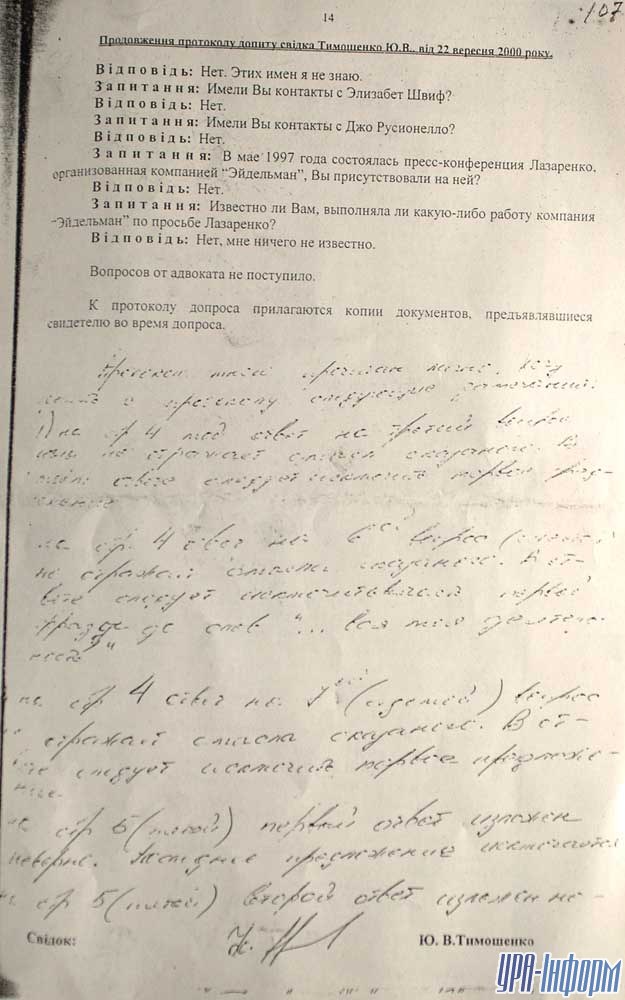 14
107
Продовження протоколу допиту свідка Тимошенко Ю.В., від 22 вересня 2000 року.
Відповідь: Нет. Этих имен я не знаю.
Запитання: Имели Вы контакты с Элизабет Швиф?
Відповідь: Нет.
Запитання: Имели Вы контакты с Джо Русионелло?
Відповідь: Нет.
Запитання: В мае 1997 года состоялась пресс-конференция Лазаренко,
организованная компанией “Эйдельман”, Вы присутствовали на ней?
Відповідь: Нет.
Запитання: Известно ли Вам, выполняла ли какую-либо работу компания
“Эйдельман” по просьбе Лазаренко?
Відповідь: Нет, мне ничего не известно.
Вопросов от адвоката не поступило.
К протоколу допроса прилагаются копии документов, предъявлявшиеся
свидетелю во время допроса.
Протокол мной прочитан лично.
к протоколу следующие замечания:
1) на стр 4 мой ответ на третий вопрос
не отражает смысла сказанного. В
ответе следует исключить первое
на стр. 4 ответ на 6 вопрос
не отражает смысла сказанного. В от-
вете следует исключить первой
фразы до слов “... вся моя деятель-
ность”
на стр 4 ответ на 7 (седьмой) вопрос
отражает смысла сказанного. В от-
следует исключить первое предложе-
ние.
стр 5 (пятой) первый ответ изложен
неверно. предложение исключается
стр 5 (пятой) второй ответ изложен не-
Свідок:
Ю. В.Тимошенко
УРА-Інформ